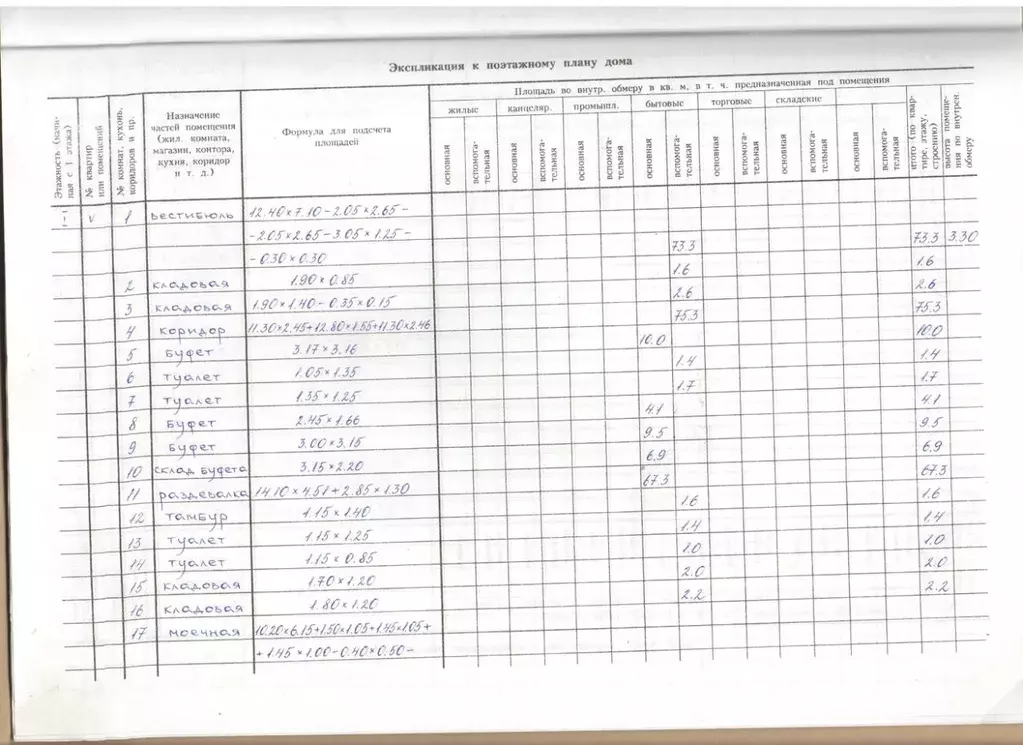 Экспликация к поэтажному плану дома
Этажность (начиная с 1 этажа)
№ квартир или помещений
№ комнат, кухонь, коридоров и пр.
Назначение частей помещения (жил. комната, магазин, контора, кухня, коридор и т. д.)
Формула для подсчета площадей
Площадь во внутр. обмеру в кв. м, в т. ч. предназначенная под помещения
жилые канцеляр. промышл. бытовые торговые складские
основная вспомогательная основная вспомогательная основная вспомогательная основная вспомогательная основная вспомогательная основная вспомогательная основная вспомогательная
итого (по квартире, этажу, строению)
высота помещения по внутрен. обмеру
V 1 вестибюль 12.40×7.10-2.05×2.65-
-2.05×2.65-3.05×1.25- 73.3 73.3 3.30
-0.30×0.30
2 кладовая 1.90×0.85 1.6 1.6
3 кладовая 1.90×1.40-0.35×0.15 2.6 2.6
4 коридор 11.30×2.45+12.80×1.55+11.30×2.46 75.3 75.3
5 буфет 3.17×3.16 10.0 10.0
6 туалет 1.05×1.35 1.4 1.4
7 туалет 1.35×1.25 1.7 1.7
8 буфет 2.45×1.66 4.1 4.1
9 буфет 3.00×3.15 9.5 9.5
10 склад буфета 3.15×2.20 6.9 6.9
11 раздевалка 14.10×4.51+2.85×1.30 67.3 67.3
12 тамбур 1.15×1.40 1.6 1.6
13 туалет 1.15×1.25 1.4 1.4
14 туалет 1.15×0.85 1.0 1.0
15 кладовая 1.70×1.20 2.0 2.0
16 кладовая 1.80×1.20 2.2 2.2
17 моечная 10.20×6.15+1.50×1.05+1.45×1.05+
+1.45×1.00-0.40×0.50-